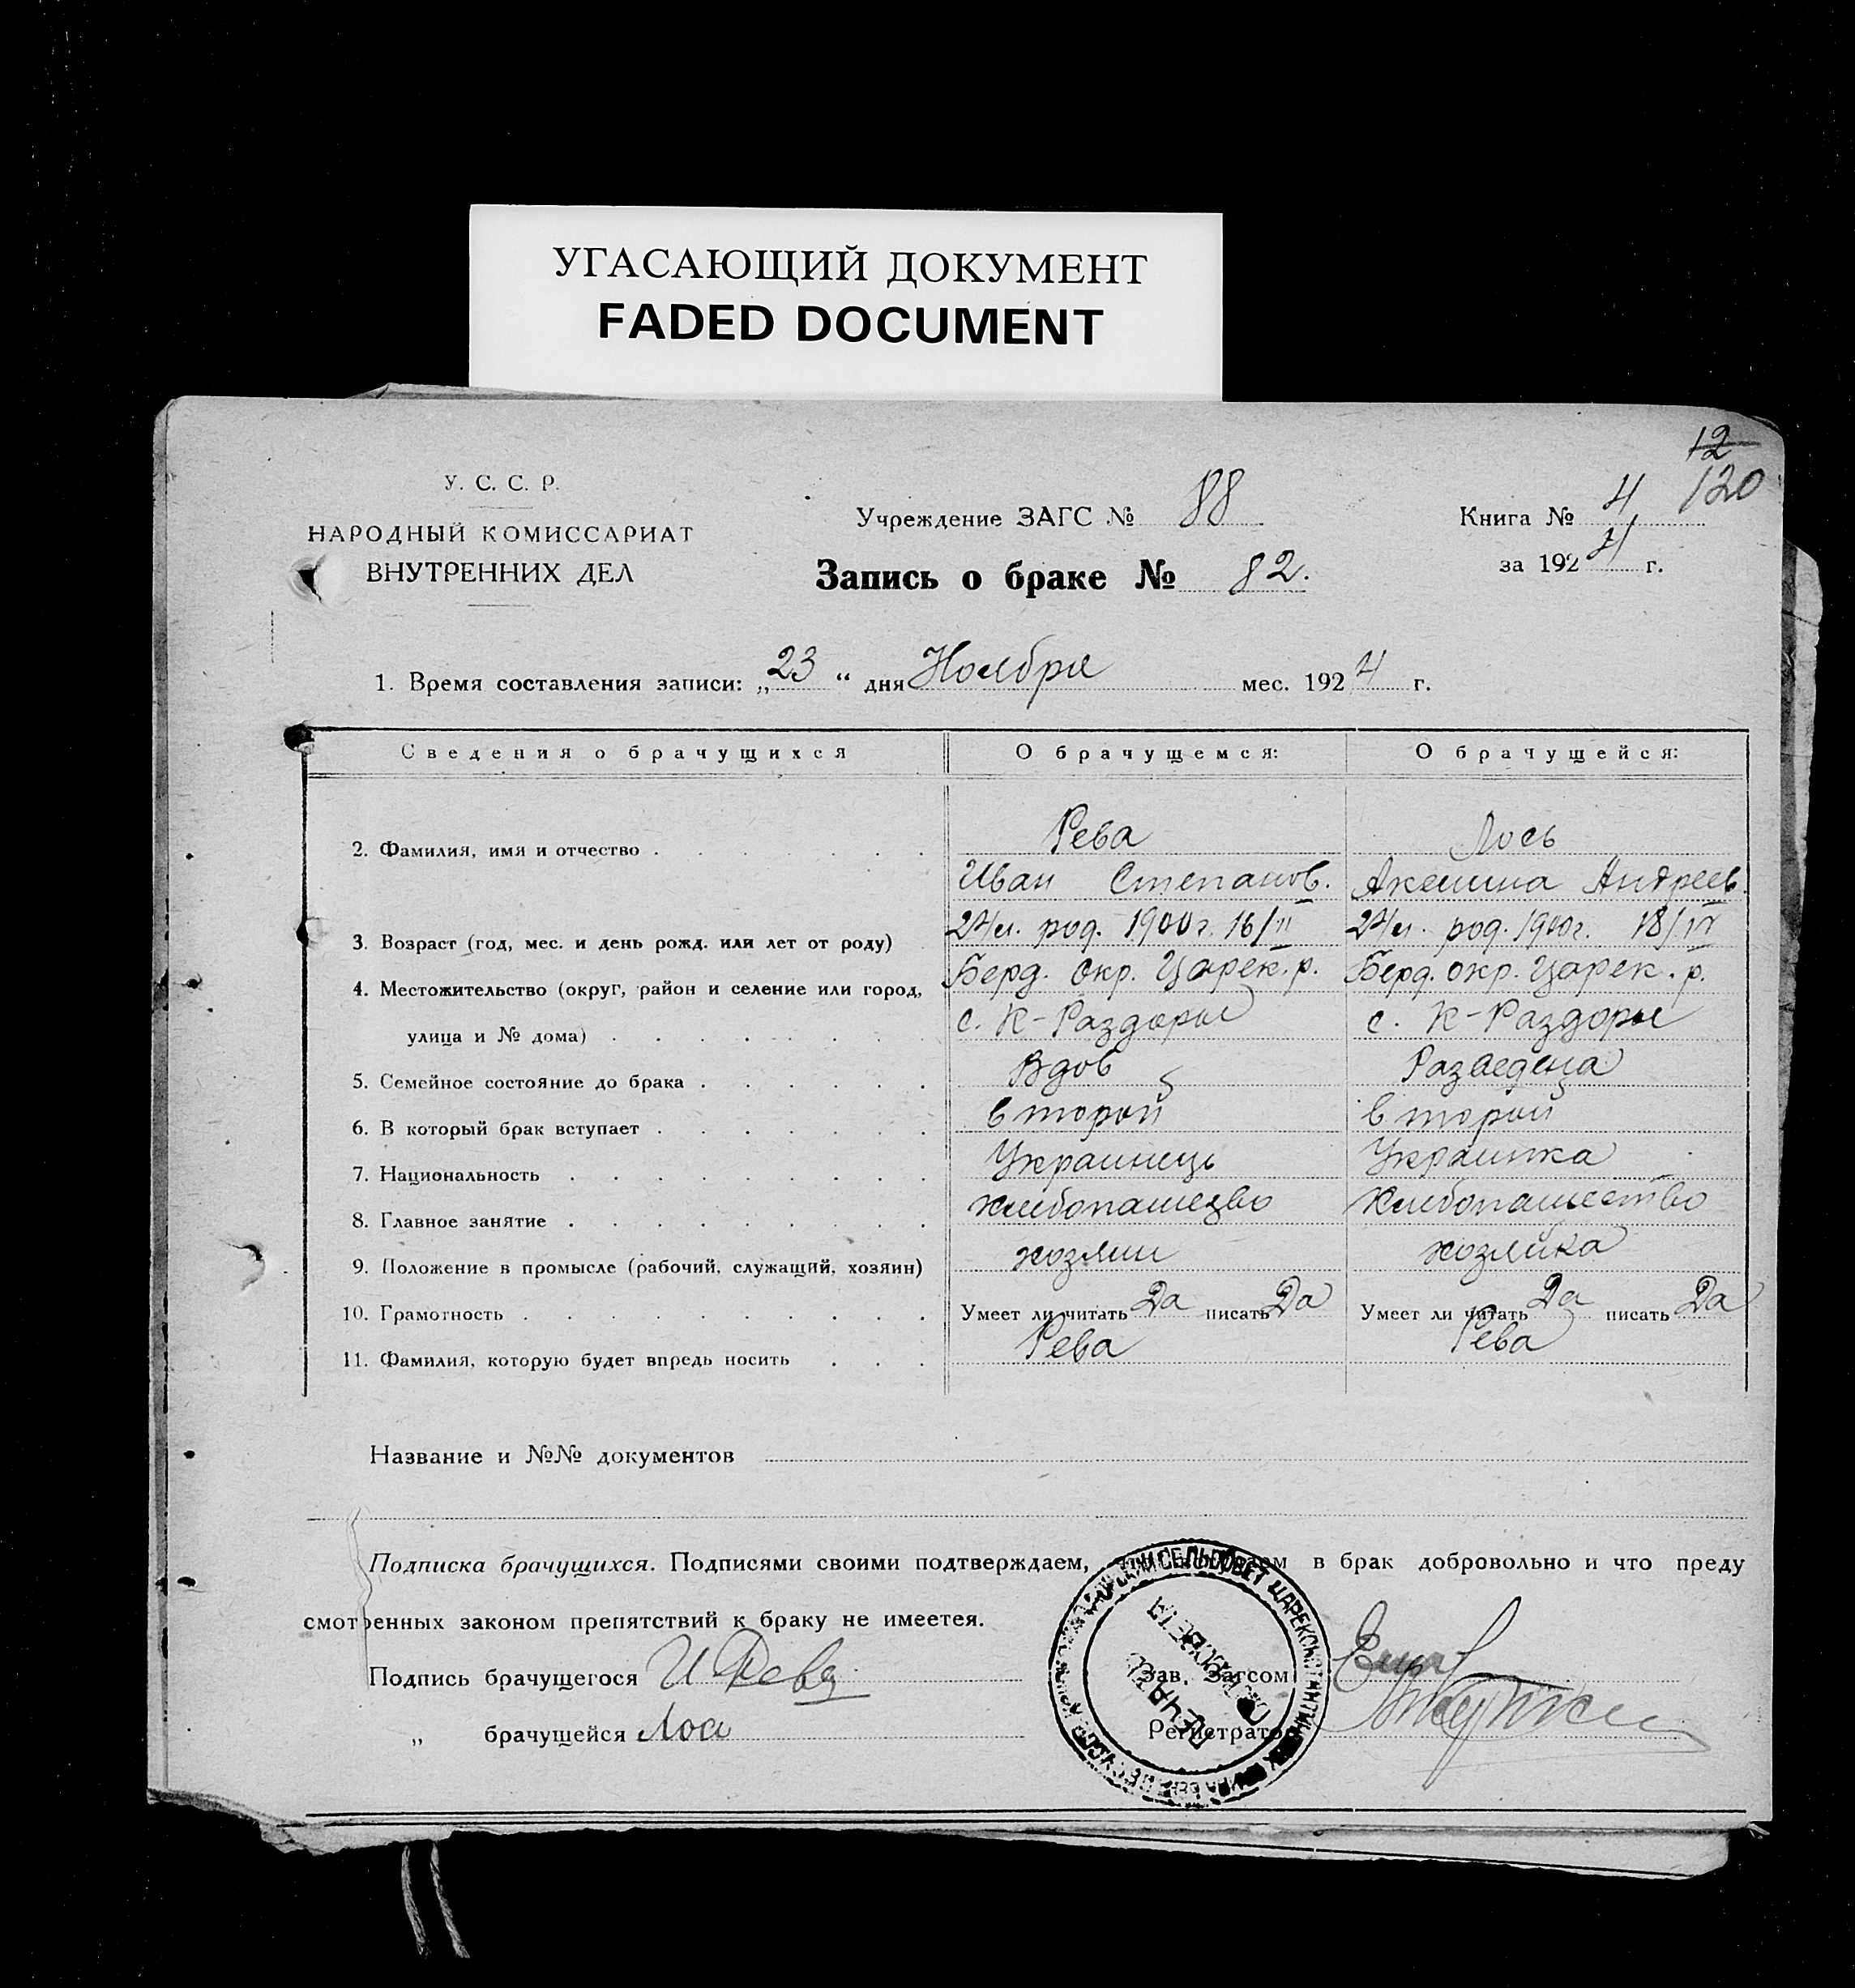 УГАСАЮЩИЙ ДОКУМЕНТ
FADED DOCUMENT
12
120
У. С. С. Р.
НАРОДНЫЙ КОМИССАРИАТ
ВНУТРЕННИХ ДЕЛ
Учреждение ЗАГС № 88
Книга № 4
за 1924 г.
Запись о браке № 82.
1. Время составления записи: „23“ дня Ноября мес. 1924 г.
Сведения о брачущихся О брачущемся: О брачущейся:
2. Фамилия, имя и отчество Рева Лось
Иван Степанов. Аксинья Андреев.
3. Возраст (год, мес. и день рожд. или лет от роду) 24л. род. 1900г. 16/II 24л. род. 1900г. 18/IV
4. Местожительство (округ, район и селение или город, Берд. окр. Царек. р. Берд. окр. Царек. р.
улица и № дома) с. К-Раздоры с. К-Раздоры
5. Семейное состояние до брака Вдов Разведена
6. В который брак вступает второй второй
7. Национальность Украинець Украинка
8. Главное занятие хлебопашество
9. Положение в промысле (рабочий, служащий, хозяин) хозяин хозяйка
10. Грамотность Умеет ли читать Да писать Да Умеет ли читать Да писать Да
11. Фамилия, которую будет впредь носить Рева Рева
Название и №№ документов
Подписка брачущихся. Подписями своими подтверждаем, в брак добровольно и что преду
смотренных законом препятствий к браку не имеетея.
Подпись брачущегося И Рева Зав. Загсом
„ брачущейся Лос Регистратор
СЕЛЬСОВЕТ ЦАРЕКОНСТАНТИНОВСК